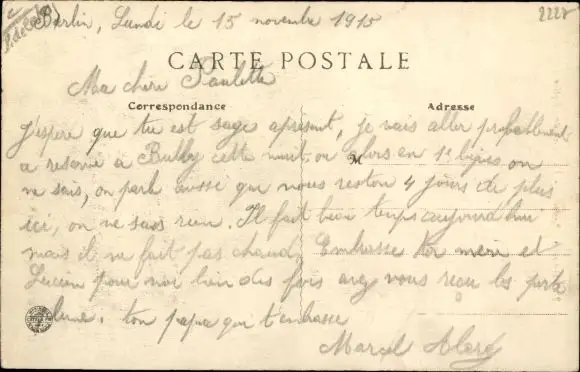 P. de C.
Berlin, Lundi le 15 novembre 1915
2228
CARTE POSTALE
Ma chère Paulette
Correspondance
Adresse
J'espère que tu est sage apresent, je vais aller probablement
a reserve a Bully cette nuit ou alors en 1e lignes on
M
ne sais, on parle aussi que nous reston 4 jours de plus
ici, on ne sais rien. Il fait beau temps aujourd'hui
mais il ne fait pas chaud. Embrasse ta mère et
Lucien pour moi bien des fois avez vous reçu les porte
plume. ton papa qui t'embrasse
Marcel